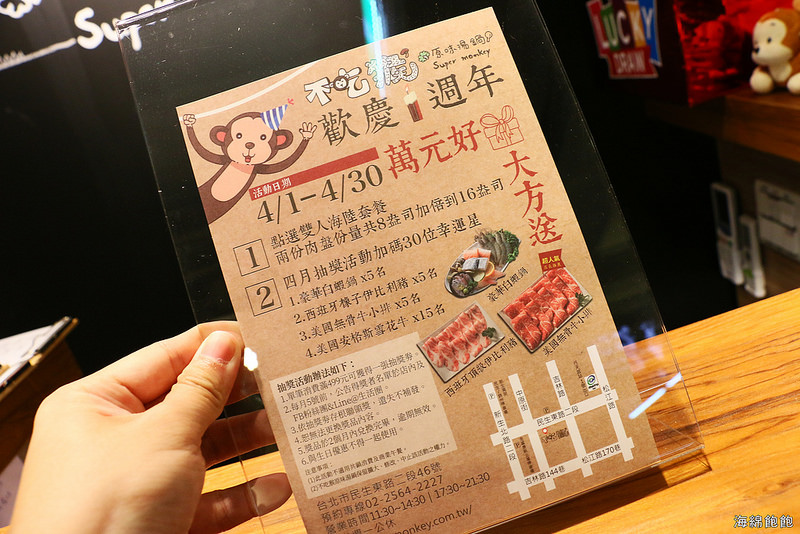 Super
LUCKY
DRAW
不吃猴
原味湯鍋
Super monkey
歡慶1週年
萬元好
大方送
活動日期
4/1-4/30
1 點選雙人海陸套餐
兩份肉盤份量共8盎司加倍到16盎司
2 四月抽獎活動加碼30位幸運星
1.豪華白蝦鍋 x5名
2.西班牙橡子伊比利豬 x5名
3.美國無骨牛小排 x5名
4.美國安格斯雪花牛 x15名
豪華白蝦鍋
超人氣
西班牙頂級伊比利豬
美國無骨牛小排
抽獎活動辦法如下：
1.單筆消費滿499元可獲得一張抽獎券。
2.每月5號前，公告得獎者名單於店內及
FB粉絲團&Line@生活圈。
3.依抽獎券存根聯領獎，遺失不補發。
4.恕無法更換獎品內容。
5.獎品於2個月內兌換完畢，逾期無效。
6.與生日優惠不得一起使用。
注意事項：
吉林路
松江路
中原街
新生北路二段
民生東路二段
吉林路144巷
松江路170巷
台北市民生東路二段46號
預約專線02-2564-2227
營業時間11:30~14:30｜17:30~21:30
週一公休
monkey.com.tw/
海綿飽飽